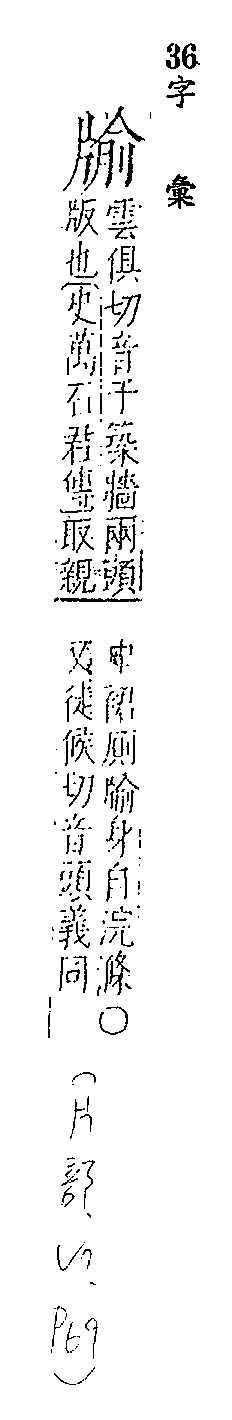 36字彙
牏
雲俱切音于築牆兩頭
版也史萬石君傳取親
中裙廁牏身自浣滌○
又徒候切音頭義同
(片部、、P69)